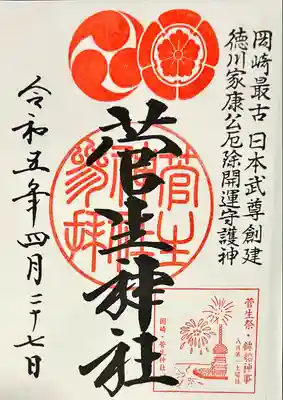 岡崎最古 日本武尊創建
徳川家康公厄除開運守護神
菅生神社
令和五年四月二十七日
菅生祭・鉾船神事
八月第一土曜日
岡崎・菅生神社